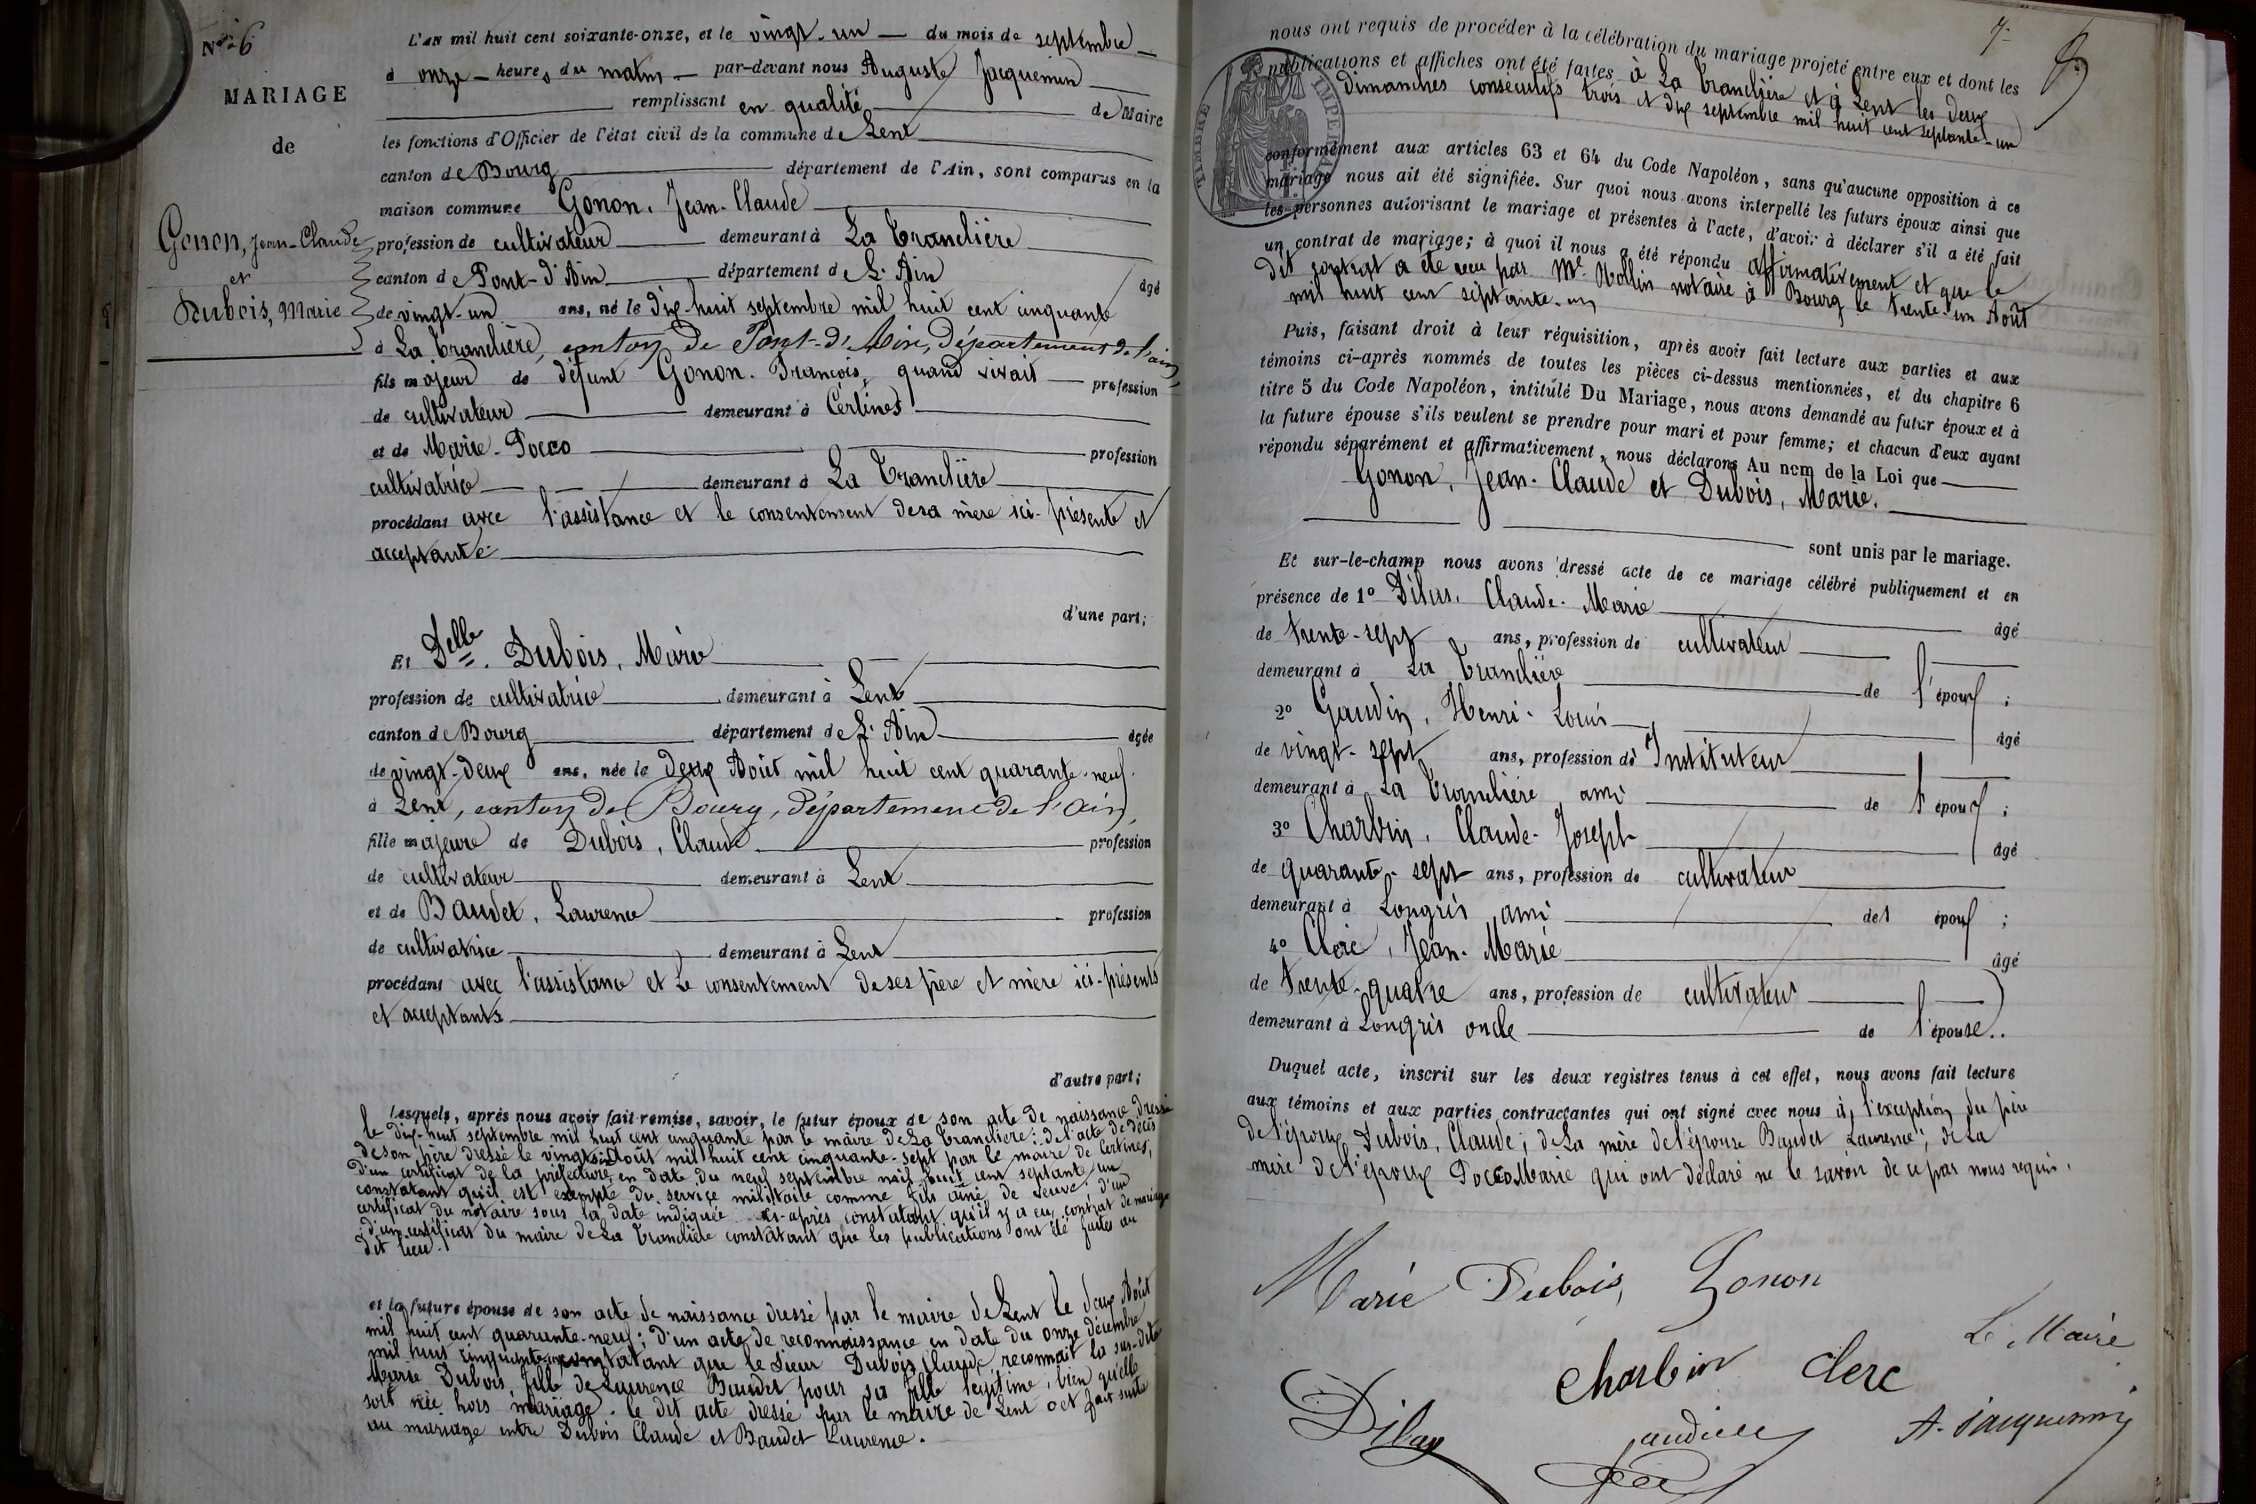 N° 6
MARIAGE
de
Gonon, Jean-Claude
et
Dubois, Marie
L'AN mil huit cent soixante-onze, et le vingt-un du mois de septembre
à onze heures du matin par-devant nous Auguste Jacquemin
remplissant en qualité de Maire
les fonctions d'Officier de l'état civil de la commune de Lent
canton de Bourg département de l'Ain, sont comparus en la
maison commune Gonon, Jean-Claude
profession de cultivateur demeurant à La Tranclière
canton de Pont-d'Ain département de L'Ain âgé
de vingt-un ans, né le dix-huit septembre mil huit cent cinquante
à La Tranclière, canton de Pont-d'Ain, département de l'ain,
fils majeur de défunt Gonon. François, quand vivait profession
de cultivateur demeurant à Certines
et de Marie-Pocco profession
cultivatrice demeurant à La Tranclière
procédant avec l'assistance et le consentement de sa mère ici-présente et
acceptante
d'une part;
Et Delle. Dubois, Marie
profession de cultivatrice demeurant à Lent
canton de Bourg département de L'Ain âgée
de vingt-deux ans, née le deux Août mil huit cent quarante-neuf
à Lent, canton de Bourg, département de l'ain,
fille majeure de Dubois, Claude profession
de cultivateur demeurant à Lent
et de Baudet, Laurence profession
de cultivatrice demeurant à Lent
procédant avec l'assistance et Le consentement de ses père et mère ici-présents
et acceptants
d'autre part;
Lesquels, après nous avoir fait remise, savoir, le futur époux de son acte de naissance dressé
le dix-huit septembre mil huit cent cinquante par le maire de La Tranclière; de l'acte de décès
de son père dressé le vingt Août mil huit cent cinquante-sept par le maire de Certines,
d'un certificat de la préfecture en date du neuf septembre mil huit cent septante-un
constatant qu'il est exempté du service militaire comme fils aîné de veuve; d'un
certificat du notaire sous la date indiquée ci-après constatant qu'il y a eu contrat de mariage
d'un certificat du maire de La Tranclière constatant que les publications ont été faites au
dit lieu.
et la future épouse de son acte de naissance dressé par le maire de Lent le deux Août
mil huit cent quarante-neuf; d'un acte de reconnaissance en date du onze décembre
mil huit cinquante constatant que le sieur Dubois Claude, reconnait la sus-dite
Marie Dubois, fille de Laurence Baudet pour sa fille légitime, bien qu'elle
soit née hors mariage. le dit acte dressé par le maire de Lent et fait suite
au mariage entre Dubois Claude et Baudet Laurence.
7
nous ont requis de procéder à la célébration du mariage projeté entre eux et dont les
publications et affiches ont été faites à La Tranclière et à Lent les deux
dimanches consécutifs trois et dix septembre mil huit cent septante-un
TIMBRE IMPERIAL
conformément aux articles 63 et 64 du Code Napoléon, sans qu'aucune opposition à ce
mariage nous ait été signifiée. Sur quoi nous avons interpellé les futurs époux ainsi que
les personnes autorisant le mariage et présentes à l'acte, d'avoir à déclarer s'il a été fait
un contrat de mariage; à quoi il nous a été répondu affirmativement et que le
dit contrat a été reçu par Me. Mollin notaire à Bourg le trente-un Août
mil huit cent septante-un
Puis, faisant droit à leur réquisition, après avoir fait lecture aux parties et aux
témoins ci-après nommés de toutes les pièces ci-dessus mentionnées, et du chapitre 6
titre 5 du Code Napoléon, intitulé Du Mariage, nous avons demandé au futur époux et à
la future épouse s'ils veulent se prendre pour mari et pour femme; et chacun d'eux ayant
répondu séparément et affirmativement, nous déclarons Au nom de la Loi que
Gonon, Jean-Claude et Dubois, Marie.
sont unis par le mariage.
Et sur-le-champ nous avons dressé acte de ce mariage célébré publiquement et en
présence de 1° Dilas, Claude-Marie âgé
de trente-sept ans, profession de cultivateur
demeurant à La Tranclière de l'époux;
2° Gaudin, Henri-Louis âgé
de vingt-sept ans, profession de Instituteur
demeurant à La Tranclière ami de l'époux;
3° Charbin, Claude-Joseph âgé
de quarante-sept ans, profession de cultivateur
demeurant à Longris ami de l époux;
4° Clerc, Jean-Marie âgé
de trente-quatre ans, profession de cultivateur
demeurant à Longris oncle de l'épouse.
Duquel acte, inscrit sur les deux registres tenus à cet effet, nous avons fait lecture
aux témoins et aux parties contractantes qui ont signé avec nous à l'exception du père
de l'époux Dubois, Claude; de La mère de l'épouse Baudet Laurence; de La
mère de l'époux Pocco Marie qui ont déclaré ne le savoir de ce par nous requis.
Marie Dubois, Gonon
Le Maire
Charbin Clerc
Dilas Gaudin A. Jacquemin